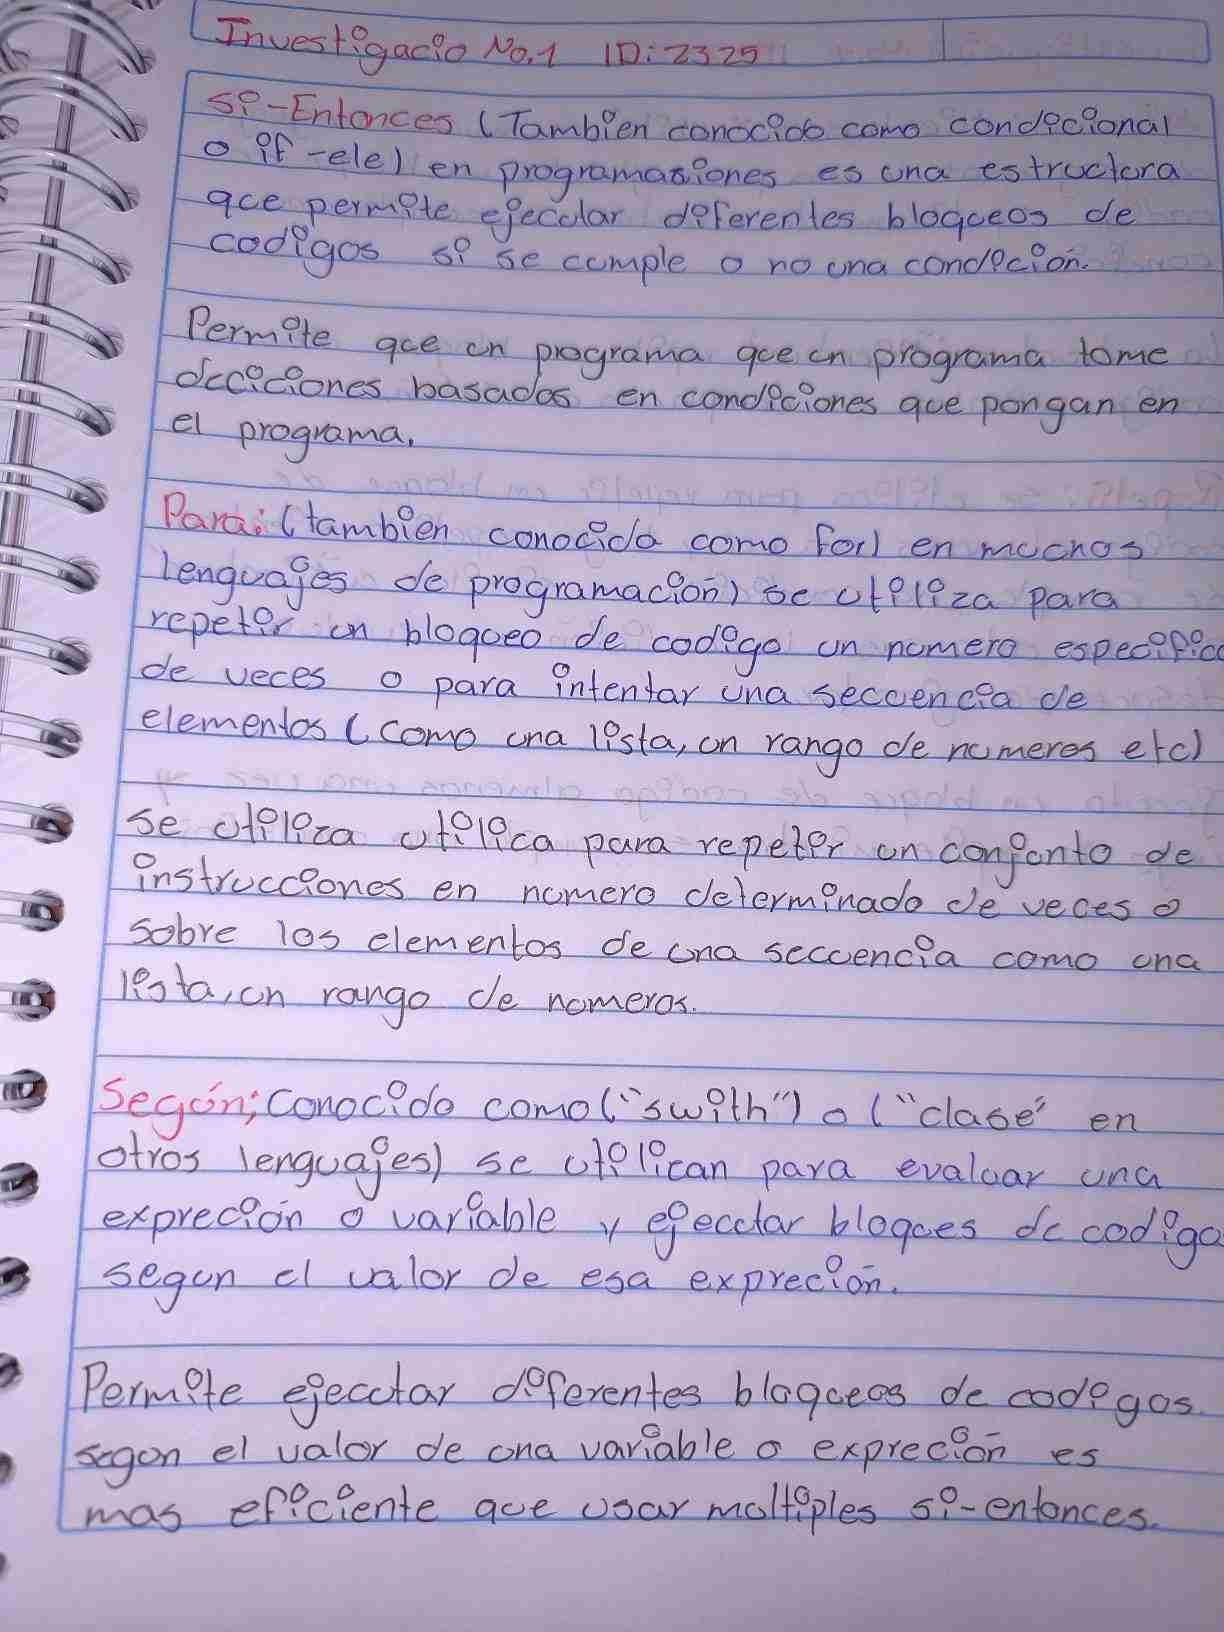 Investigacio No.1 ID: 2325
Si-Entonces (Tambien conocido como condicional
o if-ele) en programasiones es una estructura
que permite ejecutar diferentes bloqueos de
codigos si se cumple o no una condición.
Permite que un programa que un programa tome
deciciones basados en condiciones que pongan en
el programa.
Para: (tambien conocida como for) en muchos
lenguajes de programación) se utiliza para
repetir un bloqueo de codigo un numero especifico
de veces o para intentar una secuencia de
elementos (como una lista, un rango de numeros etc)
Se utiliza utilica para repetir un conjunto de
instrucciones en numero determinado de veces o
sobre los elementos de una secuencia como una
lista, un rango de numeros.
Según; Conocido como ("swith") o ("clase" en
otros lenguajes) se utilican para evaluar una
expreción o variable y ejecutar bloques de codigo
segun el valor de esa expreción.
Permite ejecutar diferentes bloqueos de codigos
segun el valor de una variable o expreción es
mas eficiente que usar multiples si-entonces.